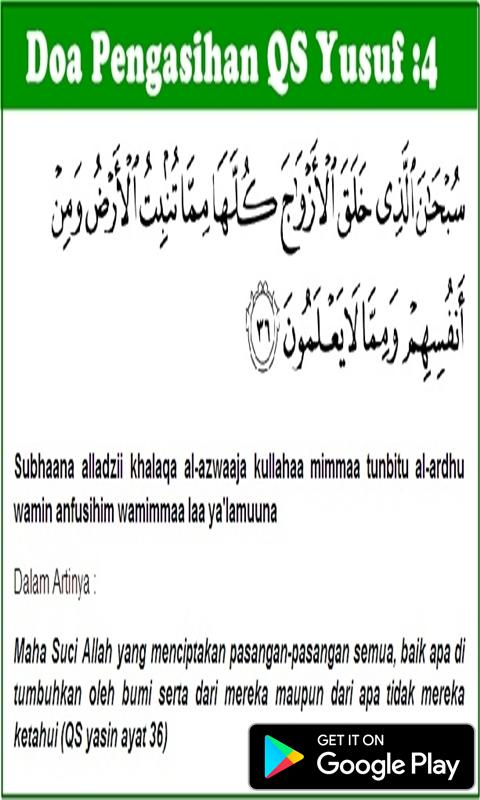 Doa Pengasihan QS Yusuf :4
سُبْحَٰنَ ٱلَّذِى خَلَقَ ٱلْأَزْوَٰجَ كُلَّهَا مِمَّا تُنۢبِتُ ٱلْأَرْضُ وَمِنْ
أَنفُسِهِمْ وَمِمَّا لَا يَعْلَمُونَ ٣٦
Subhaana alladzii khalaqa al-azwaaja kullahaa mimmaa tunbitu al-ardhu
wamin anfusihim wamimmaa laa ya'lamuuna
Dalam Artinya :
Maha Suci Allah yang menciptakan pasangan-pasangan semua, baik apa di
tumbuhkan oleh bumi serta dari mereka maupun dari apa tidak mereka
ketahui (QS yasin ayat 36)
GET IT ON
Google Play